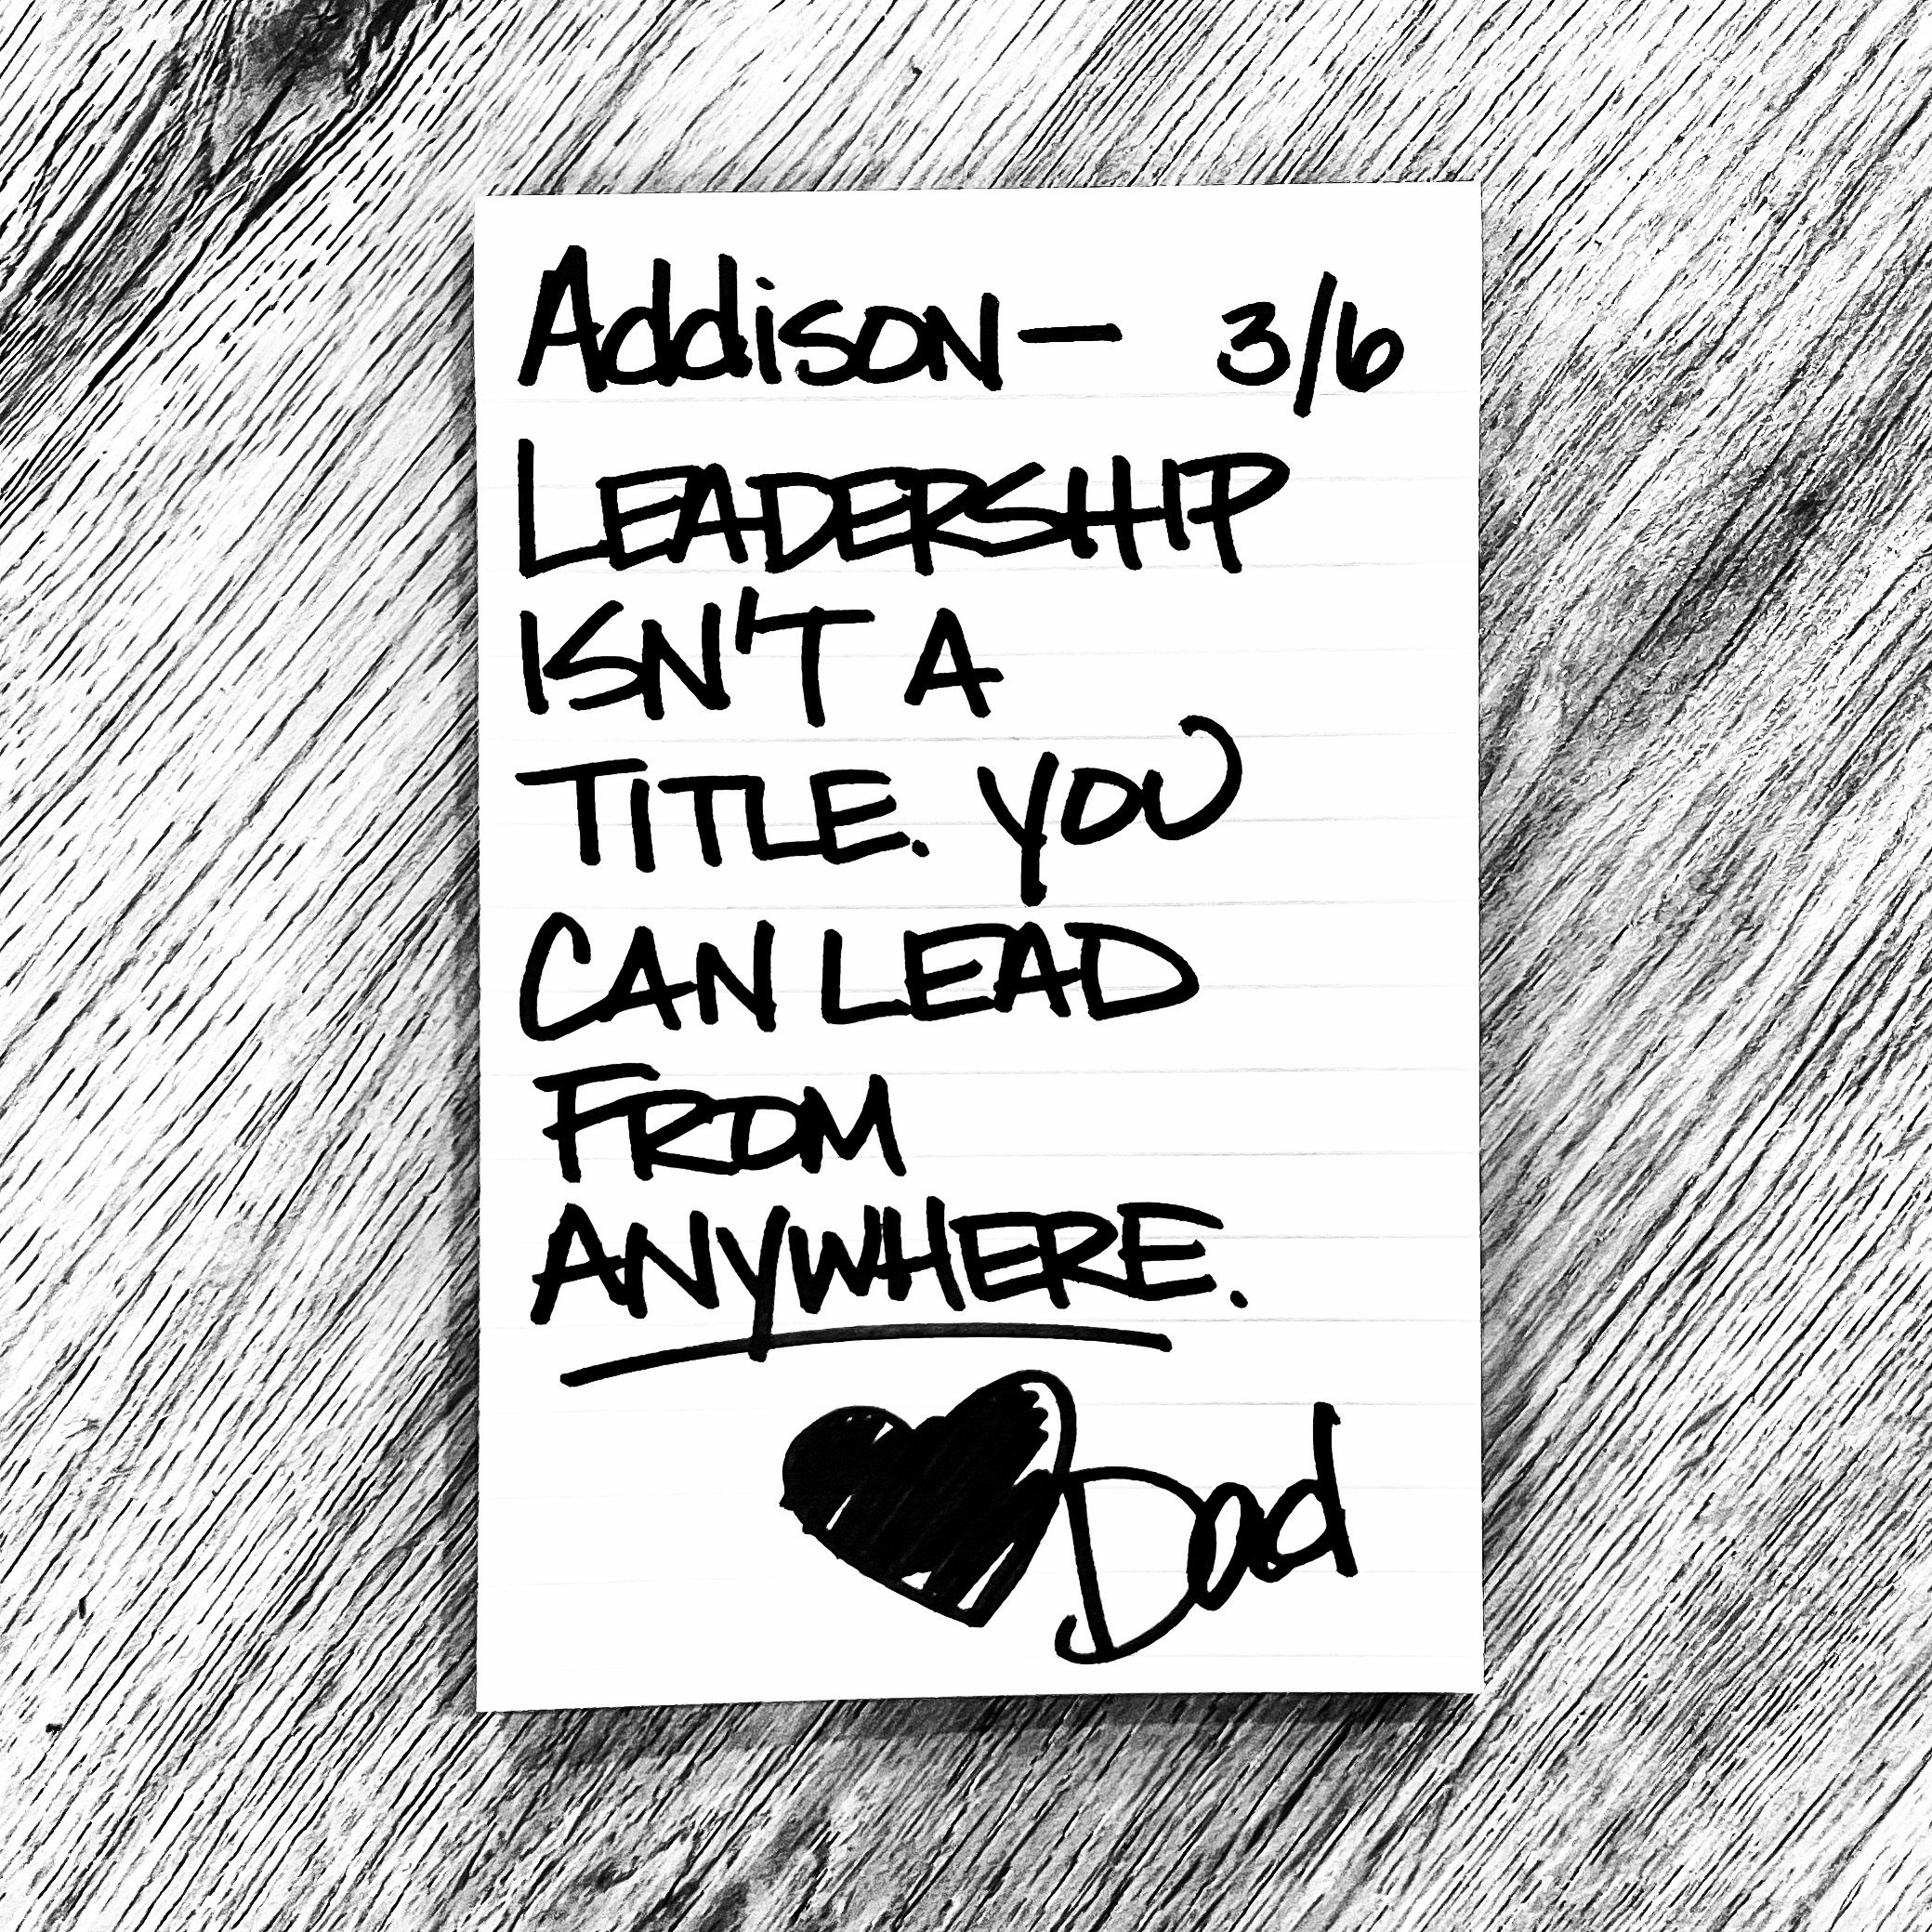 Addison— 3/6
LEADERSHIP
ISN'T A
TITLE. YOU
CAN LEAD
FROM
ANYWHERE.
Dad